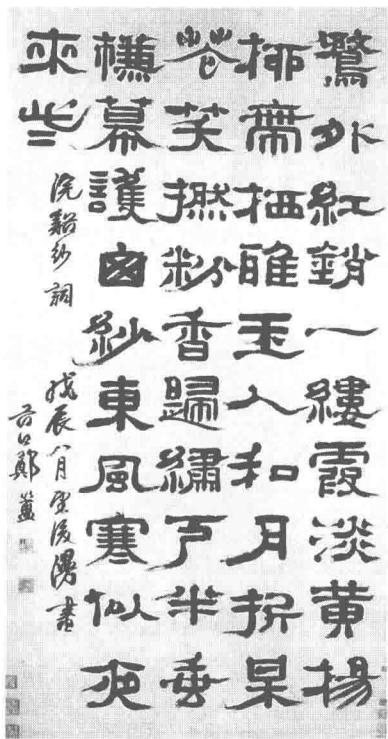 鶩外紅銷一縷霞淡黃楊
桺帶栖鴉玉人和月折呆
花笑撚粉香歸繡戶半垂
幕護窗紗東風寒似夜
來些
浣谿紗詞
戊辰八月望後漫書
谷口鄭簠